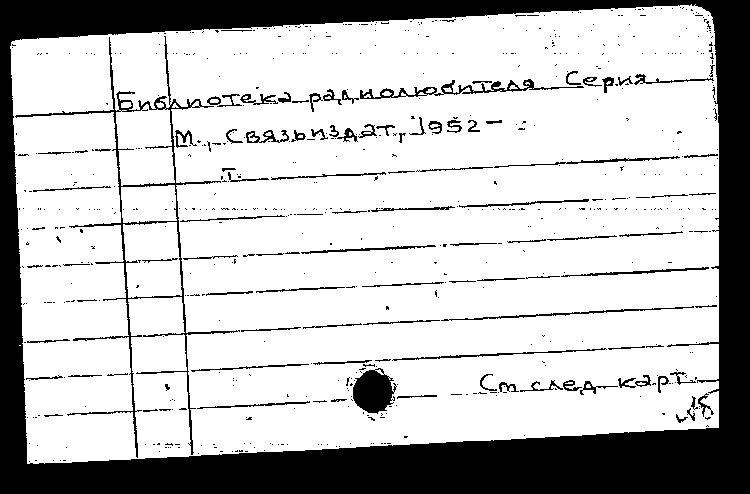 Библиотека радиолюбителя Серия.
М., Связьиздат, 1952 –
т.
См след. карт.